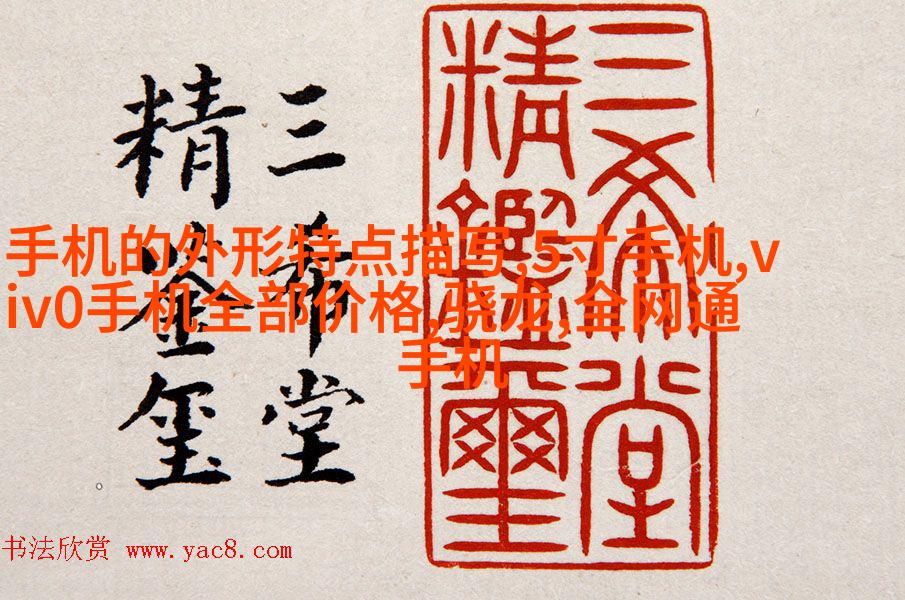 三希堂
精鉴玺
三希堂
精鑑璽
手机的外形特点描写,5寸手机,v
iv0手机全部价格,骁龙,全网通
手机
书法欣赏 www.yac8.com